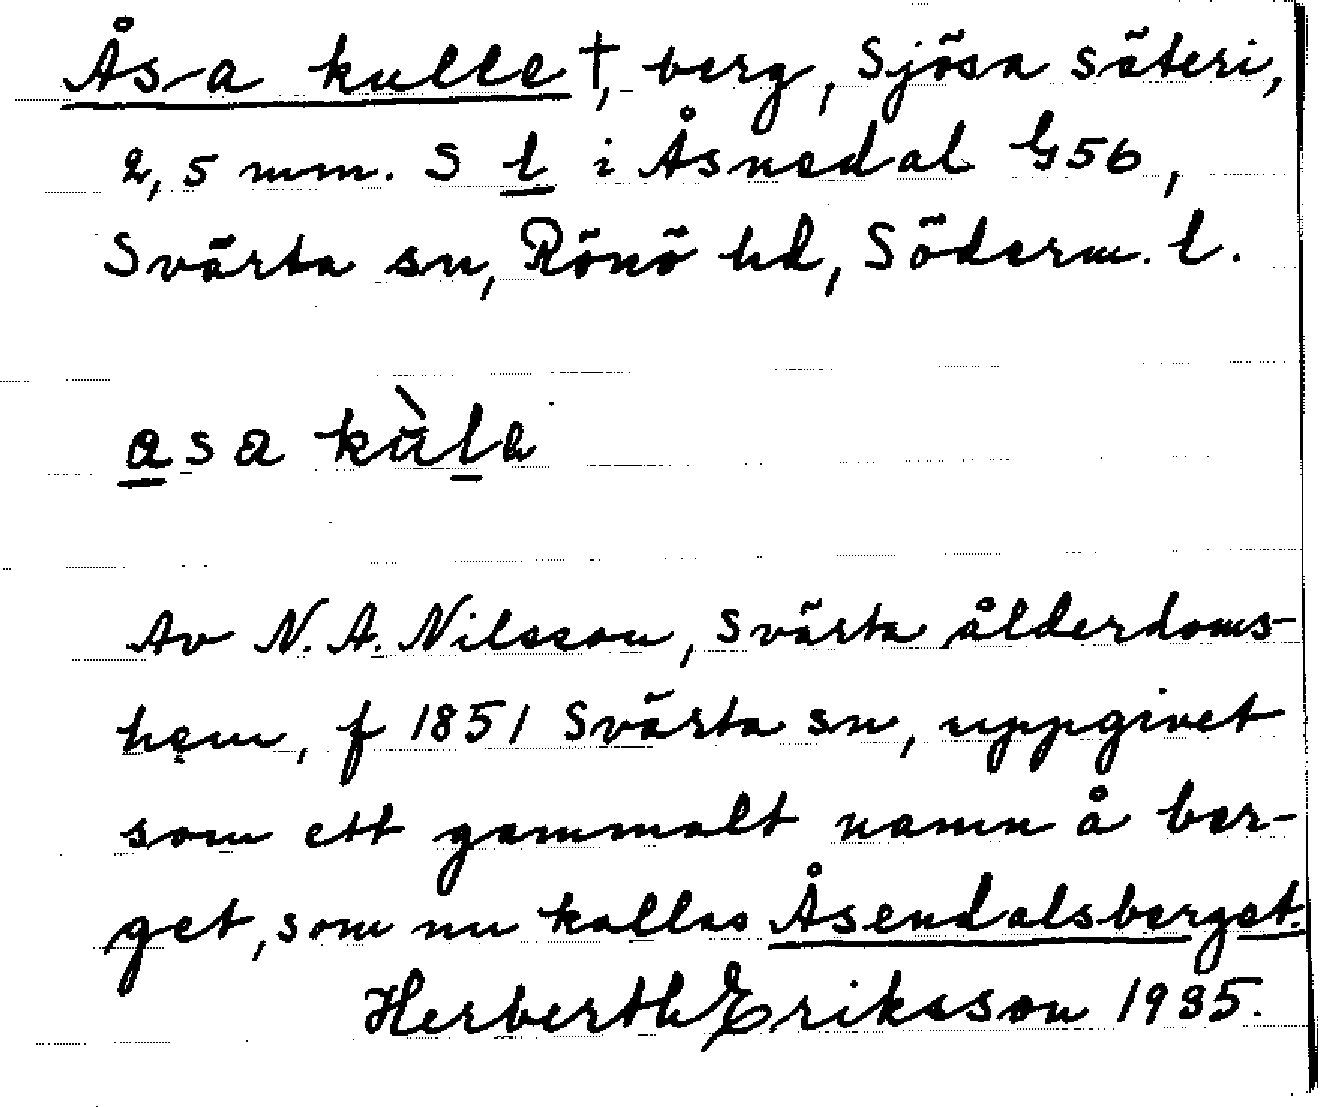 Åsa kulle †, berg, Sjösa säteri,
2,5 mm. S l i Åsnedal G56,
Svärta sn, Rönö hd, Söderm. l.
asa kùla
Av N. A. Nilsson, Svärta ålderdoms-
hem, f 1851 Svärta sn, uppgivet
som ett gammalt namn å ber-
get, som nu kallas Åsendalsberget.
Herberth Eriksson 1935.